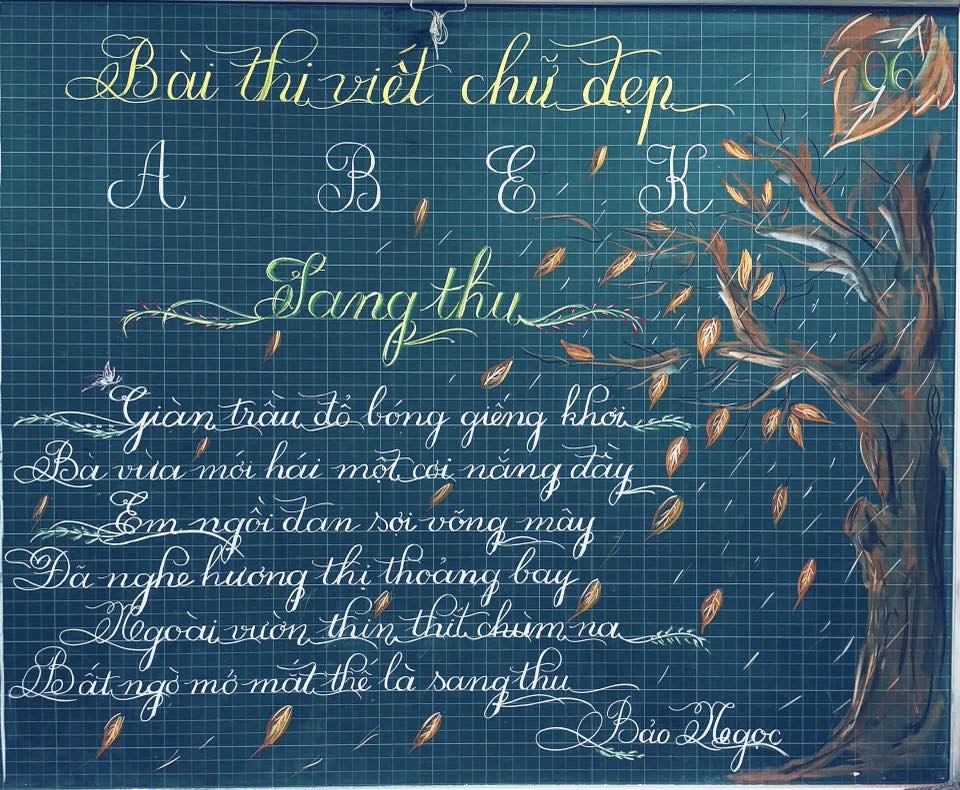 Bài thi viết chữ đẹp
06
A B E K
Sang thu
Giàn trầu đổ bóng giếng khơi
Bà vừa mới hái một cơi nắng đầy
Em ngồi đan sợi võng mây
Đã nghe hương thị thoảng bay
Ngoài vườn thin thít chùm na
Bất ngờ mở mắt thế là sang thu
Bảo Ngọc